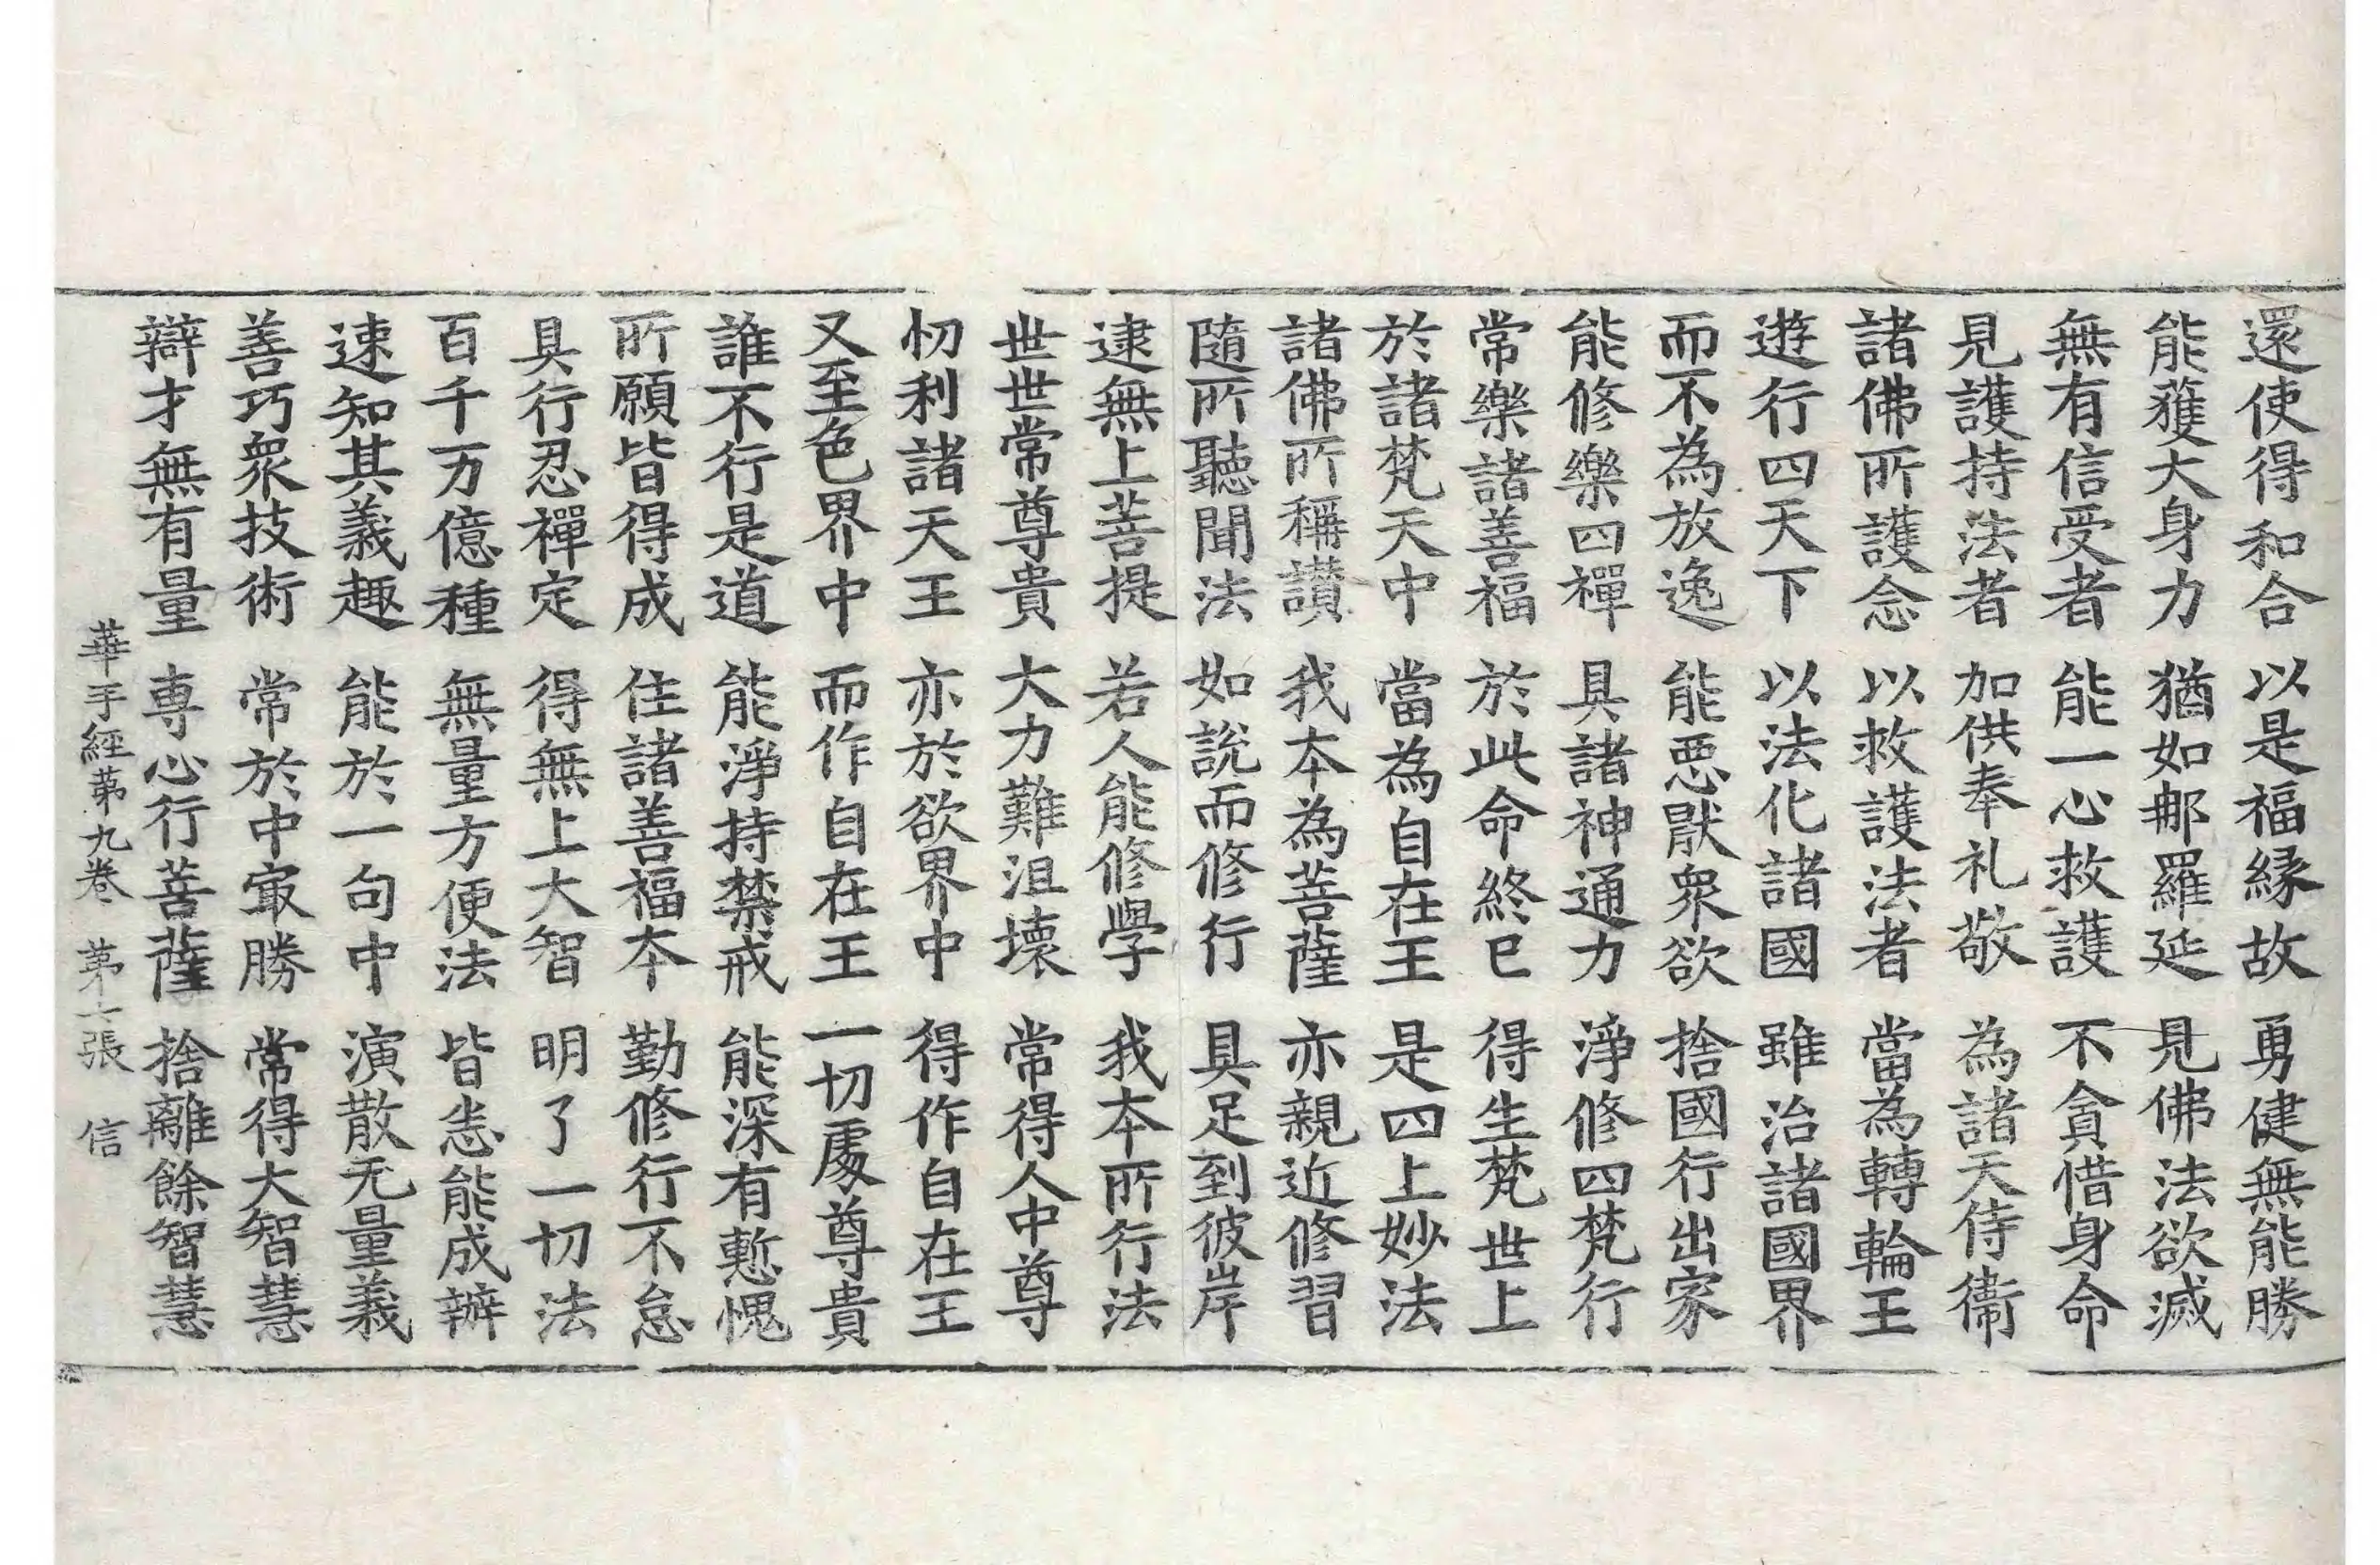 還使得和合　以是福縁故　勇健無能勝
能獲大身力　猶如那羅延　見佛法欲滅
無有信受者　能一心救護　不貪惜身命
見護持法者　加供奉礼敬　為諸天侍衛
諸佛所護念　以救護法者　當為轉輪王
遊行四天下　以法化諸國　雖治諸國界
而不為放逸　能惡猒衆欲　捨國行出家
能修樂四禪　具諸神通力　淨修四梵行
常樂諸善福　於此命終已　得生梵世上
於諸梵天中　當為自在王　是四上妙法
諸佛所稱讃　我本為菩薩　亦親近修習
隨所聽聞法　如說而修行　具足到彼岸
逮無上菩提　若人能修學　我本所行法
世世常尊貴　大力難沮壞　常得人中尊
忉利諸天王　亦於欲界中　得作自在王
又至色界中　而作自在王　一切處尊貴
誰不行是道　能淨持禁戒　能深有慙愧
所願皆得成　住諸善福本　勤修行不怠
具行忍禪定　得無上大智　明了一切法
百千万億種　無量方便法　皆悉能成辦
速知其義趣　能於一句中　演散无量義
善巧衆技術　常於中㝡勝　常得大智慧
辯才無有量　専心行菩薩　捨離餘智慧
華手經苐九卷　苐張　信